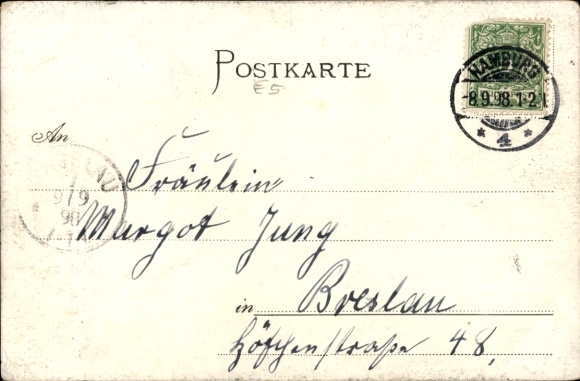 POSTKARTE
E5
HAMBURG
8.9.98.1-2N
* 4 *
An
Fräulein
Margot Jung
in Breslau
Höfchenstraße 48,
9/9
98